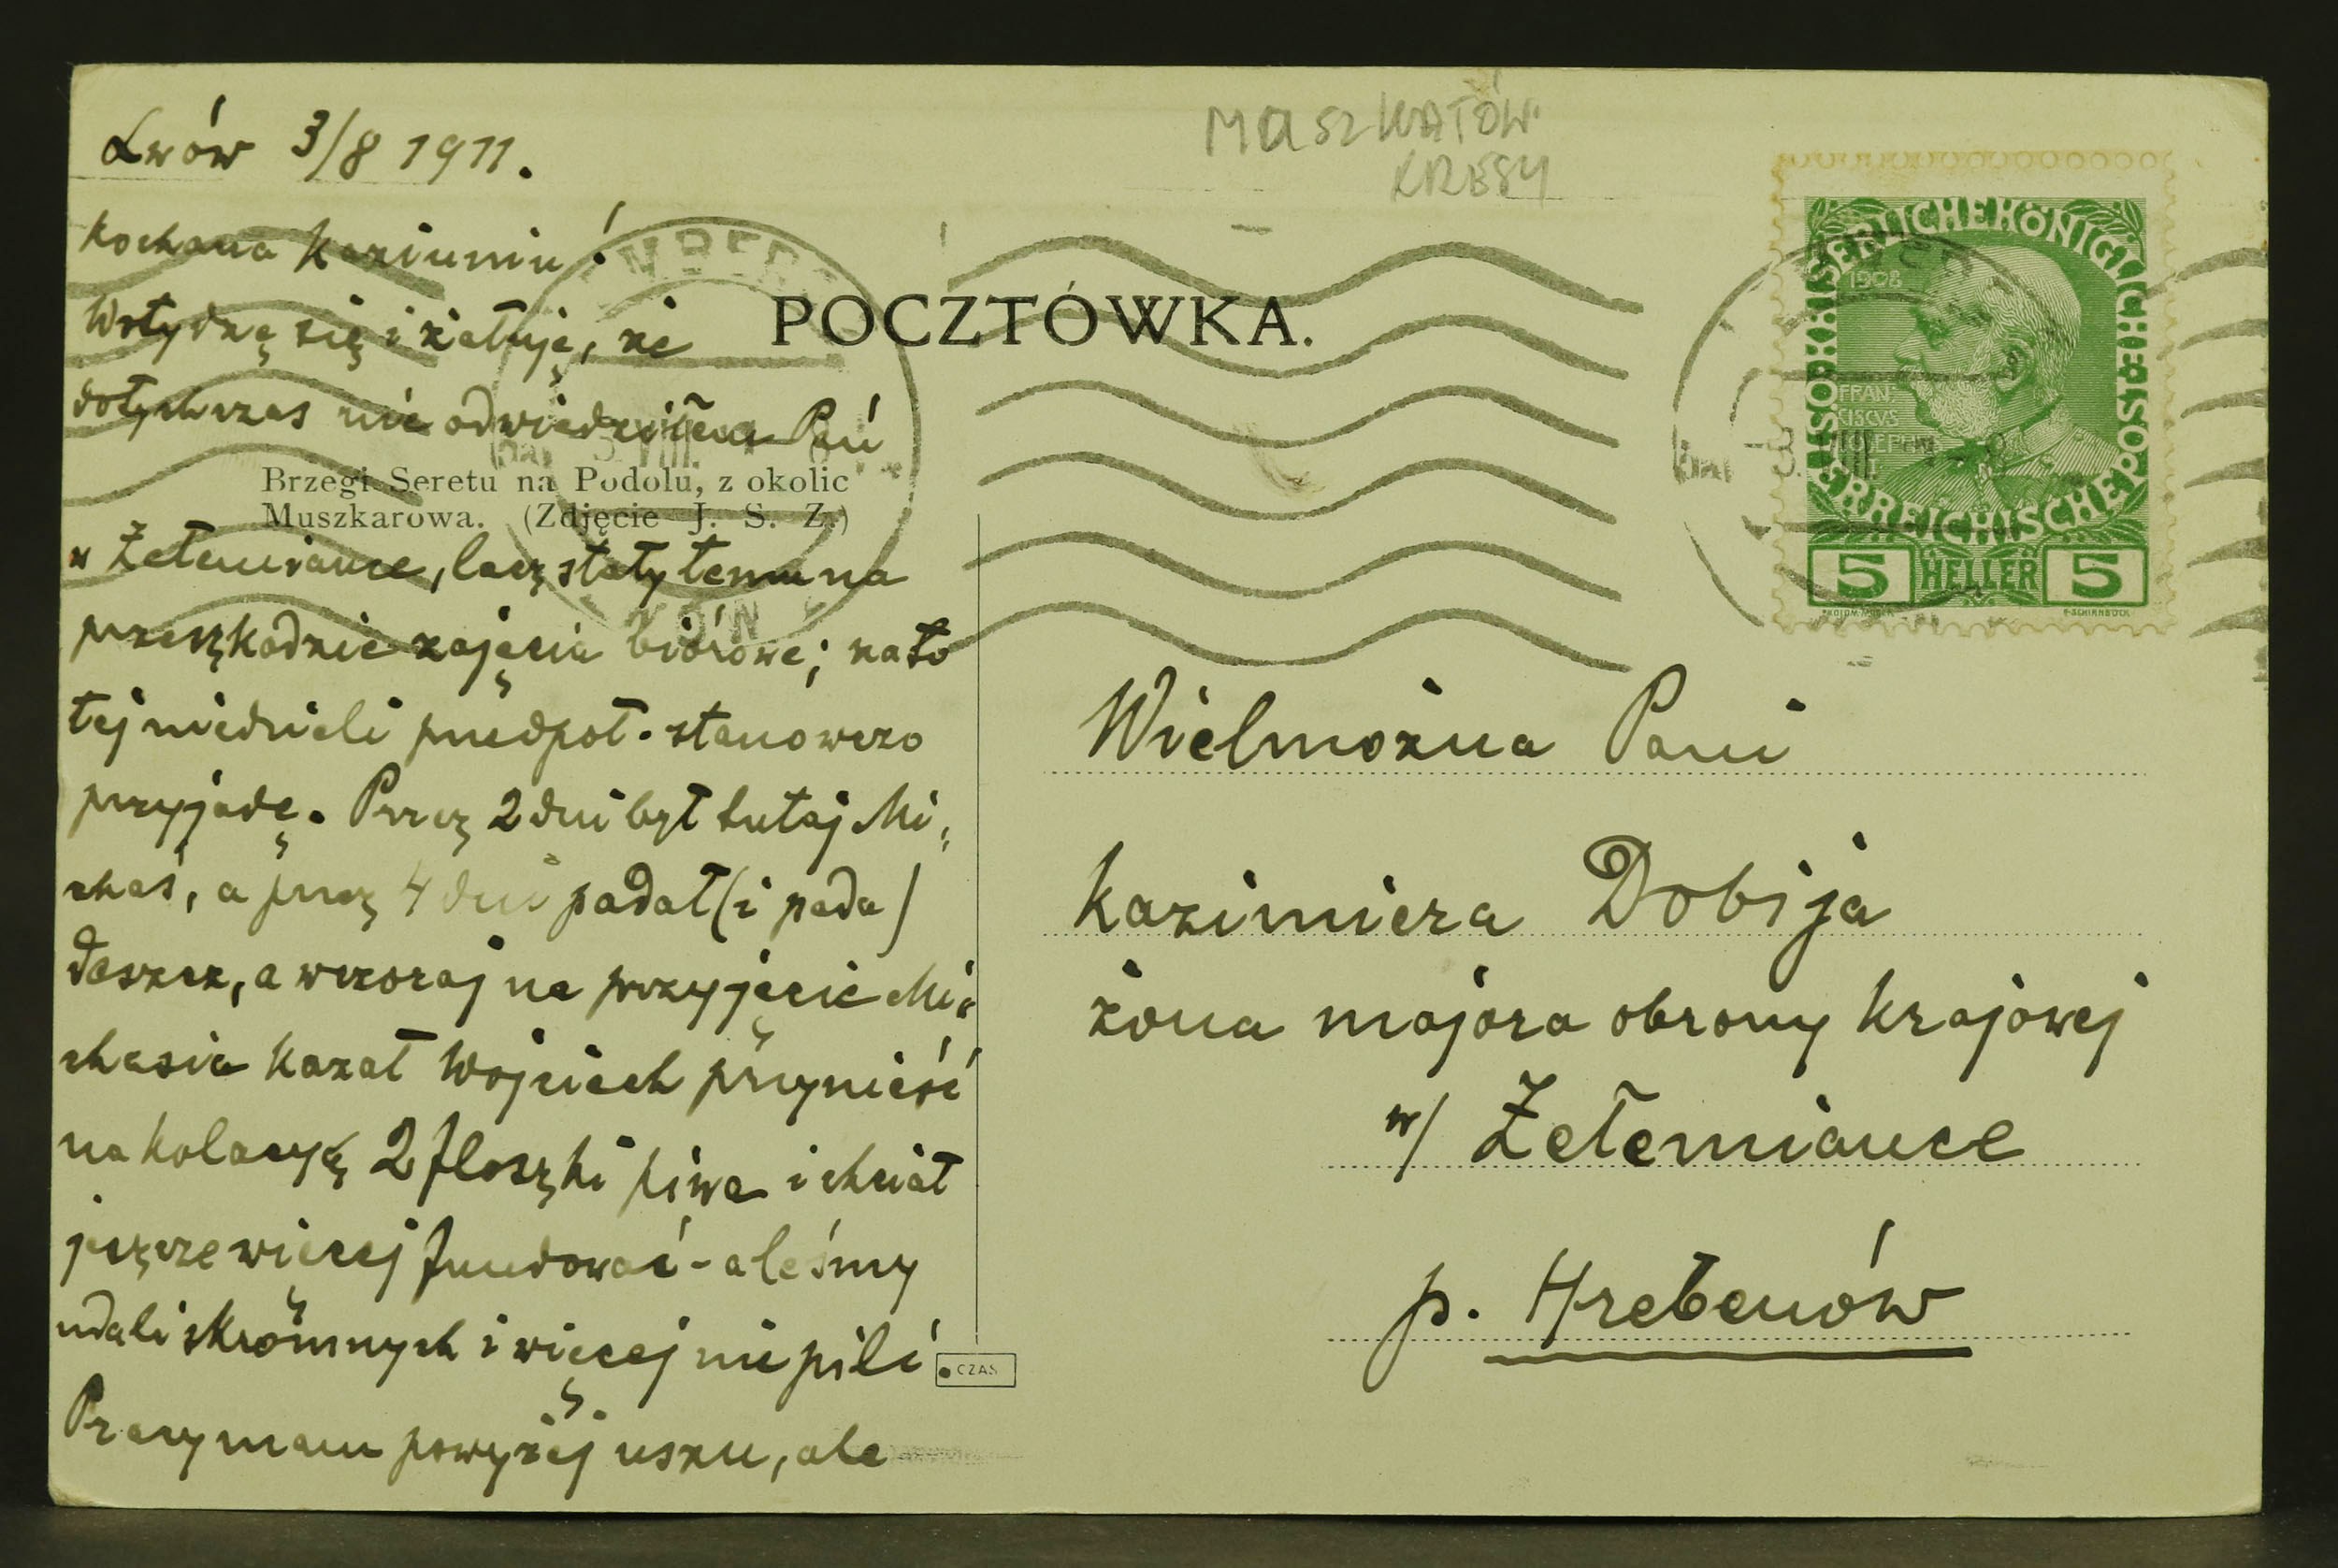 Lwów 3/8 1911.
Kochana Kaziuniu!
Wstydzę się i żałuję, że
dotychczas nie odwiedziłem Pań
Brzegi Seretu na Podolu, z okolic
Muszkarowa. (Zdjęcie J. S. Z.)
w Żełemiance, lecz stały temu na
przeszkodzie zajęcia biórowe; na to
tej niedzieli przedpoł. stanowczo
przyjadę. Przez 2 dni był tutaj Mi„
chaś, a przez 4 dni padał (i pada)
deszcz, a wczoraj na przyjęcie Mi„
chasia kazał Wojciech przynieść
na kolacyę 2 flaszki piwa i chciał
jeszcze więcej fundować - aleśmy
udali skromnych i więcej nie pili.
Pracy mam powyżej uszu, ale
CZAS
MUSZKATÓW
KRESY
POCZTÓWKA.
KAISERLICHE KÖNIGLICHE ÖSTERREICHISCHE POST
1908
FRAN
CISCVS
IOSEPH
5 HELLER 5
Wielmożna Pani
Kazimiera Dobija
żona majora obrony krajowej
w/ Żełemiance
p. Hrebenów